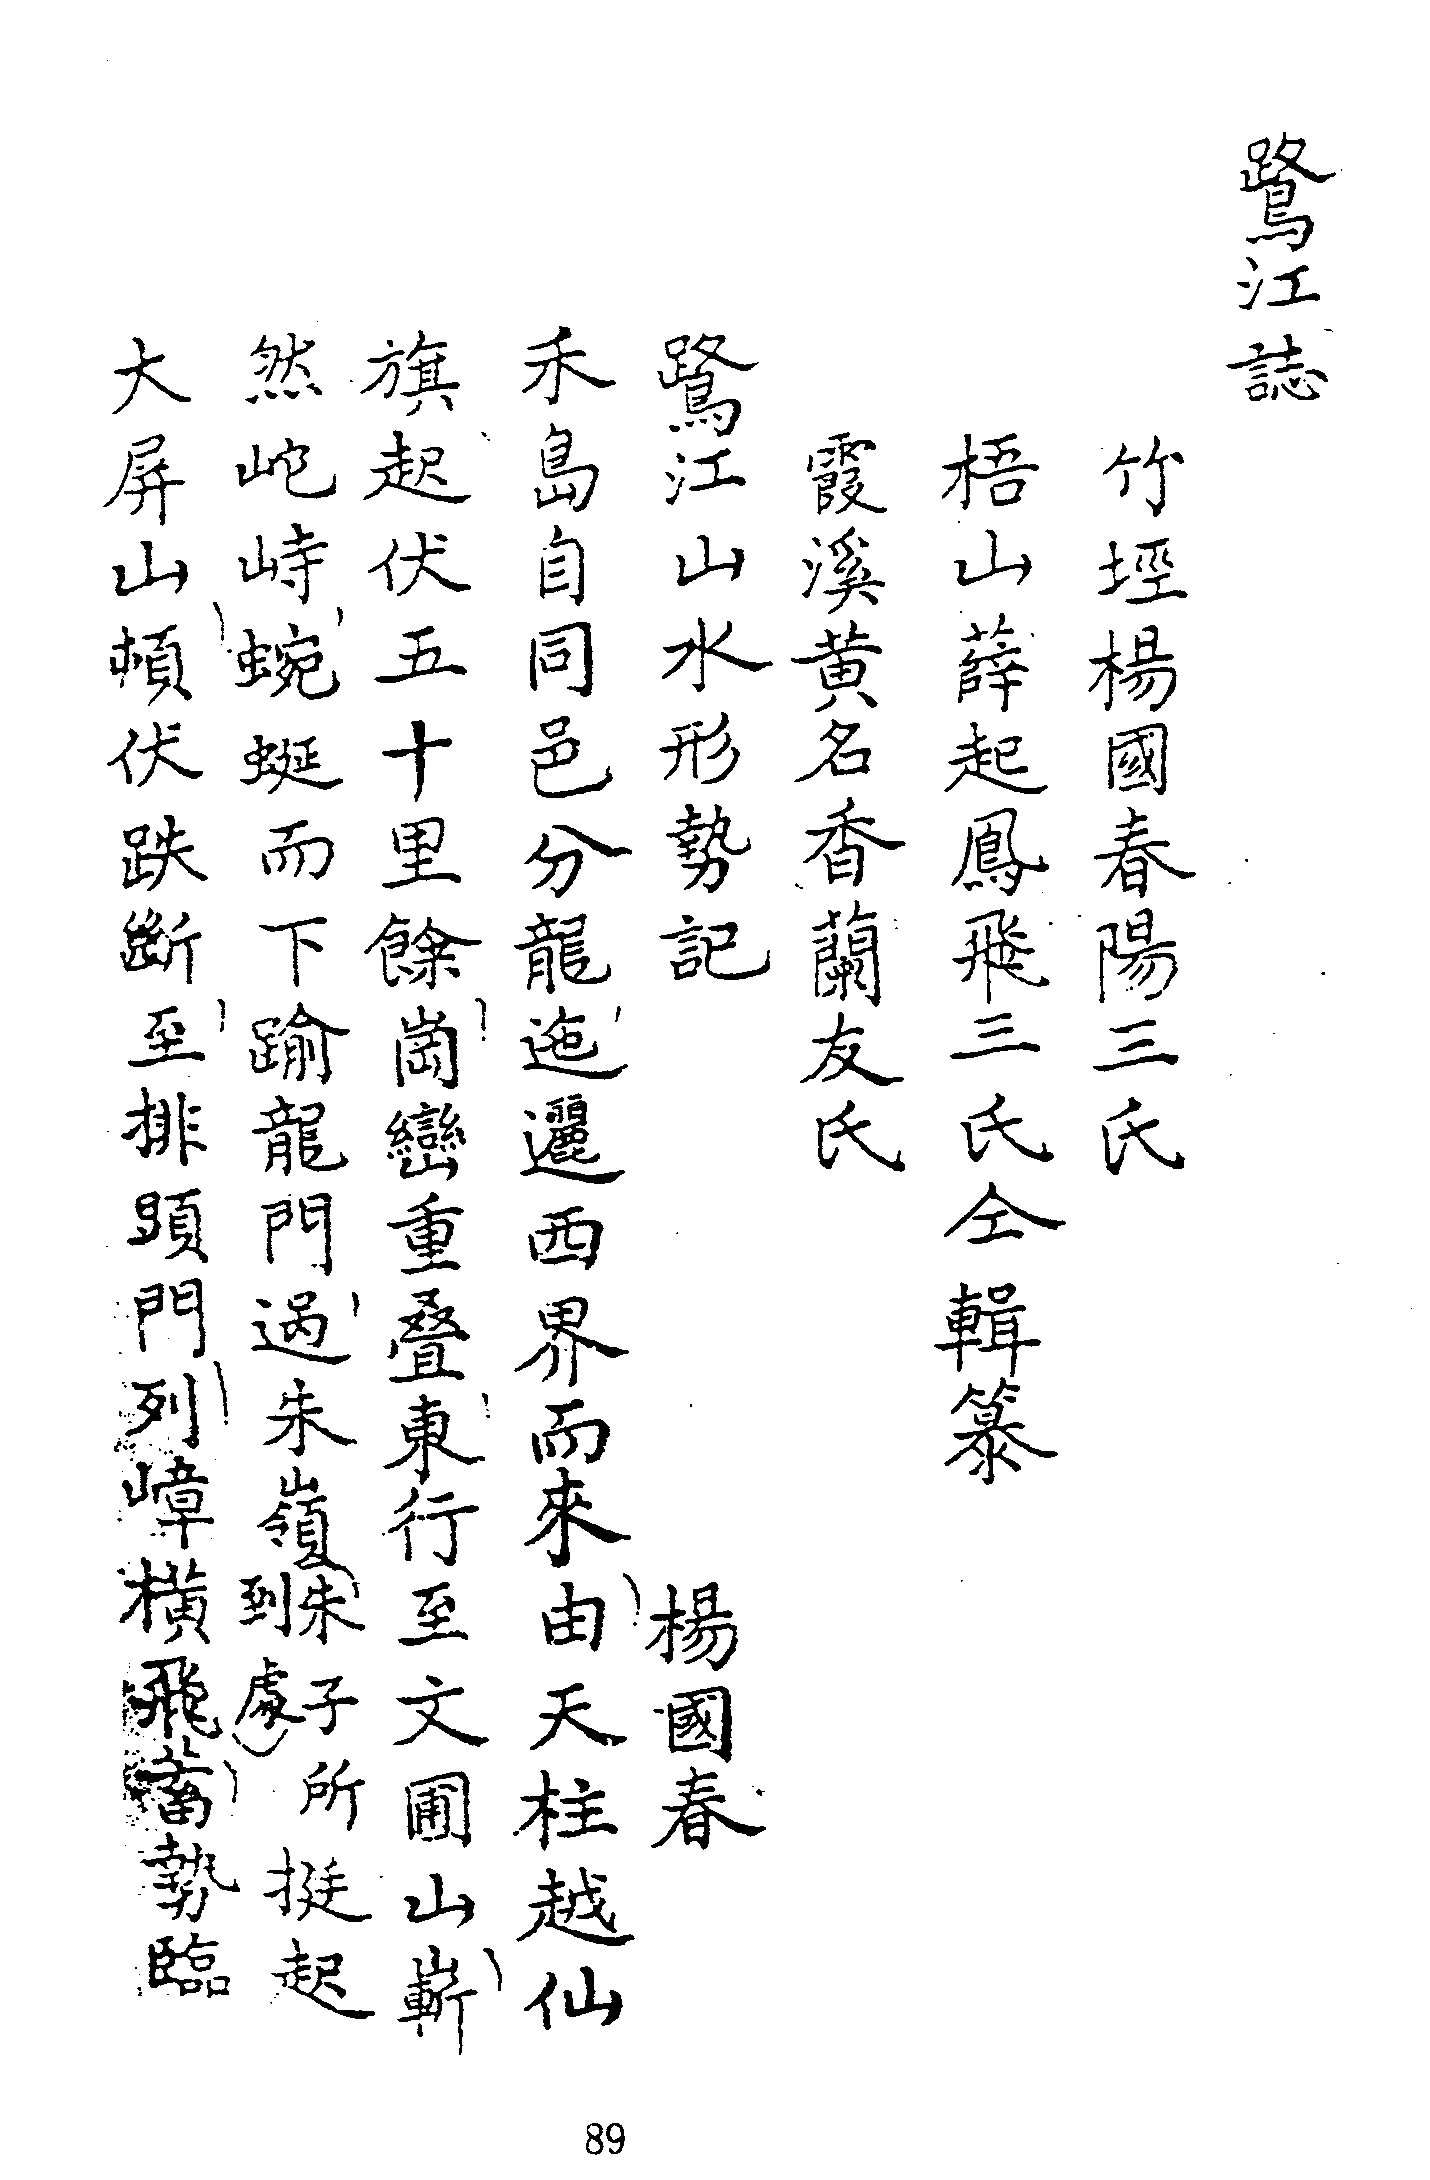 鷺江誌
竹坙楊國春陽三氏
梧山薛起鳳飛三氏仝輯篹
霞溪黄名香蘭友氏
鷺江山水形勢記 楊國春
禾島自同邑分龍迤邐西界而來由天柱越仙
旗起伏五十里餘崗巒重疊東行至文圃山嶄
然屹峙蜿蜒而下踰龍門過朱嶺朱子所到處挺起
大屏山頓伏跌斷至排頭門列嶂橫飛蓄勢臨
89